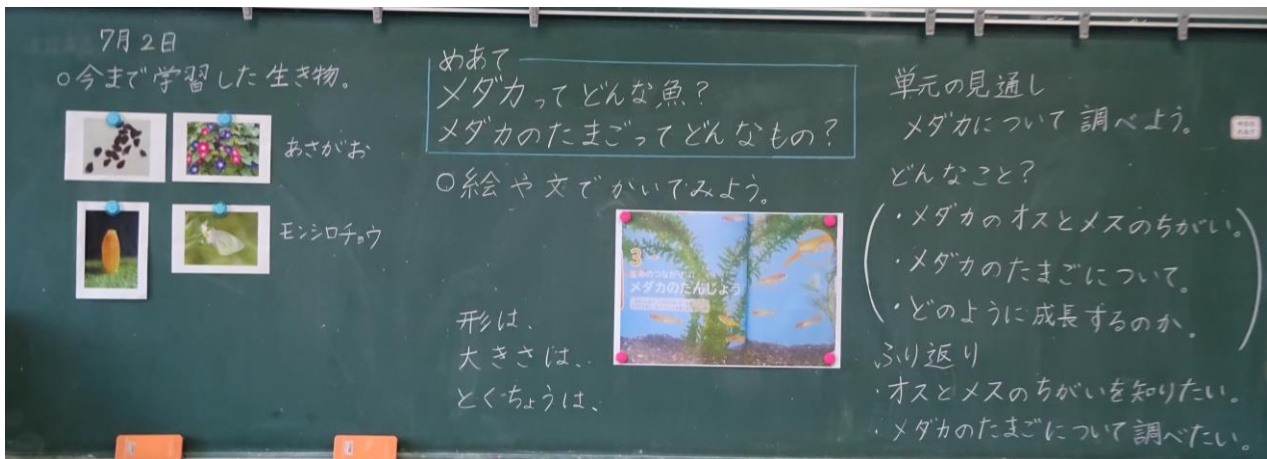 7月2日
○今まで学習した生き物。
あさがお
モンシロチョウ
めあて
メダカってどんな魚?
メダカのたまごってどんなもの?
○絵や文でかいてみよう。
3
メダカのたんじょう
形は、
大きさは、
とくちょうは、
単元の見通し
メダカについて調べよう。
どんなこと?
・メダカのオスとメスのちがい。
・メダカのたまごについて。
・どのように成長するのか。
ふり返り
・オスとメスのちがいを知りたい。
・メダカのたまごについて調べたい。